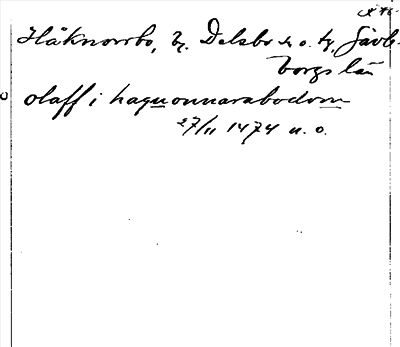 Håknorrbo, by, Delsbo sn o. tg, Gävle-
borgs län
olaff i haquonnarabodom
27/11 1474 u. o.